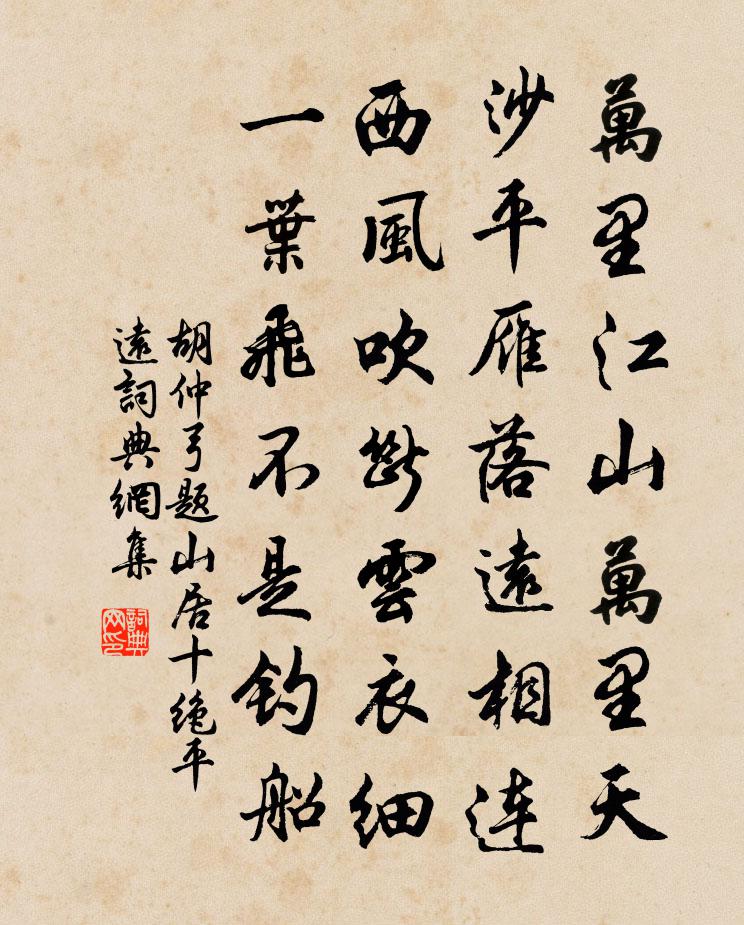 萬里江山萬里天
沙平雁落遠相連
西風吹斷雲衣細
一葉飛不是釣船
胡仲弓題山居十絶平
遠詞典網集
詞典
网印